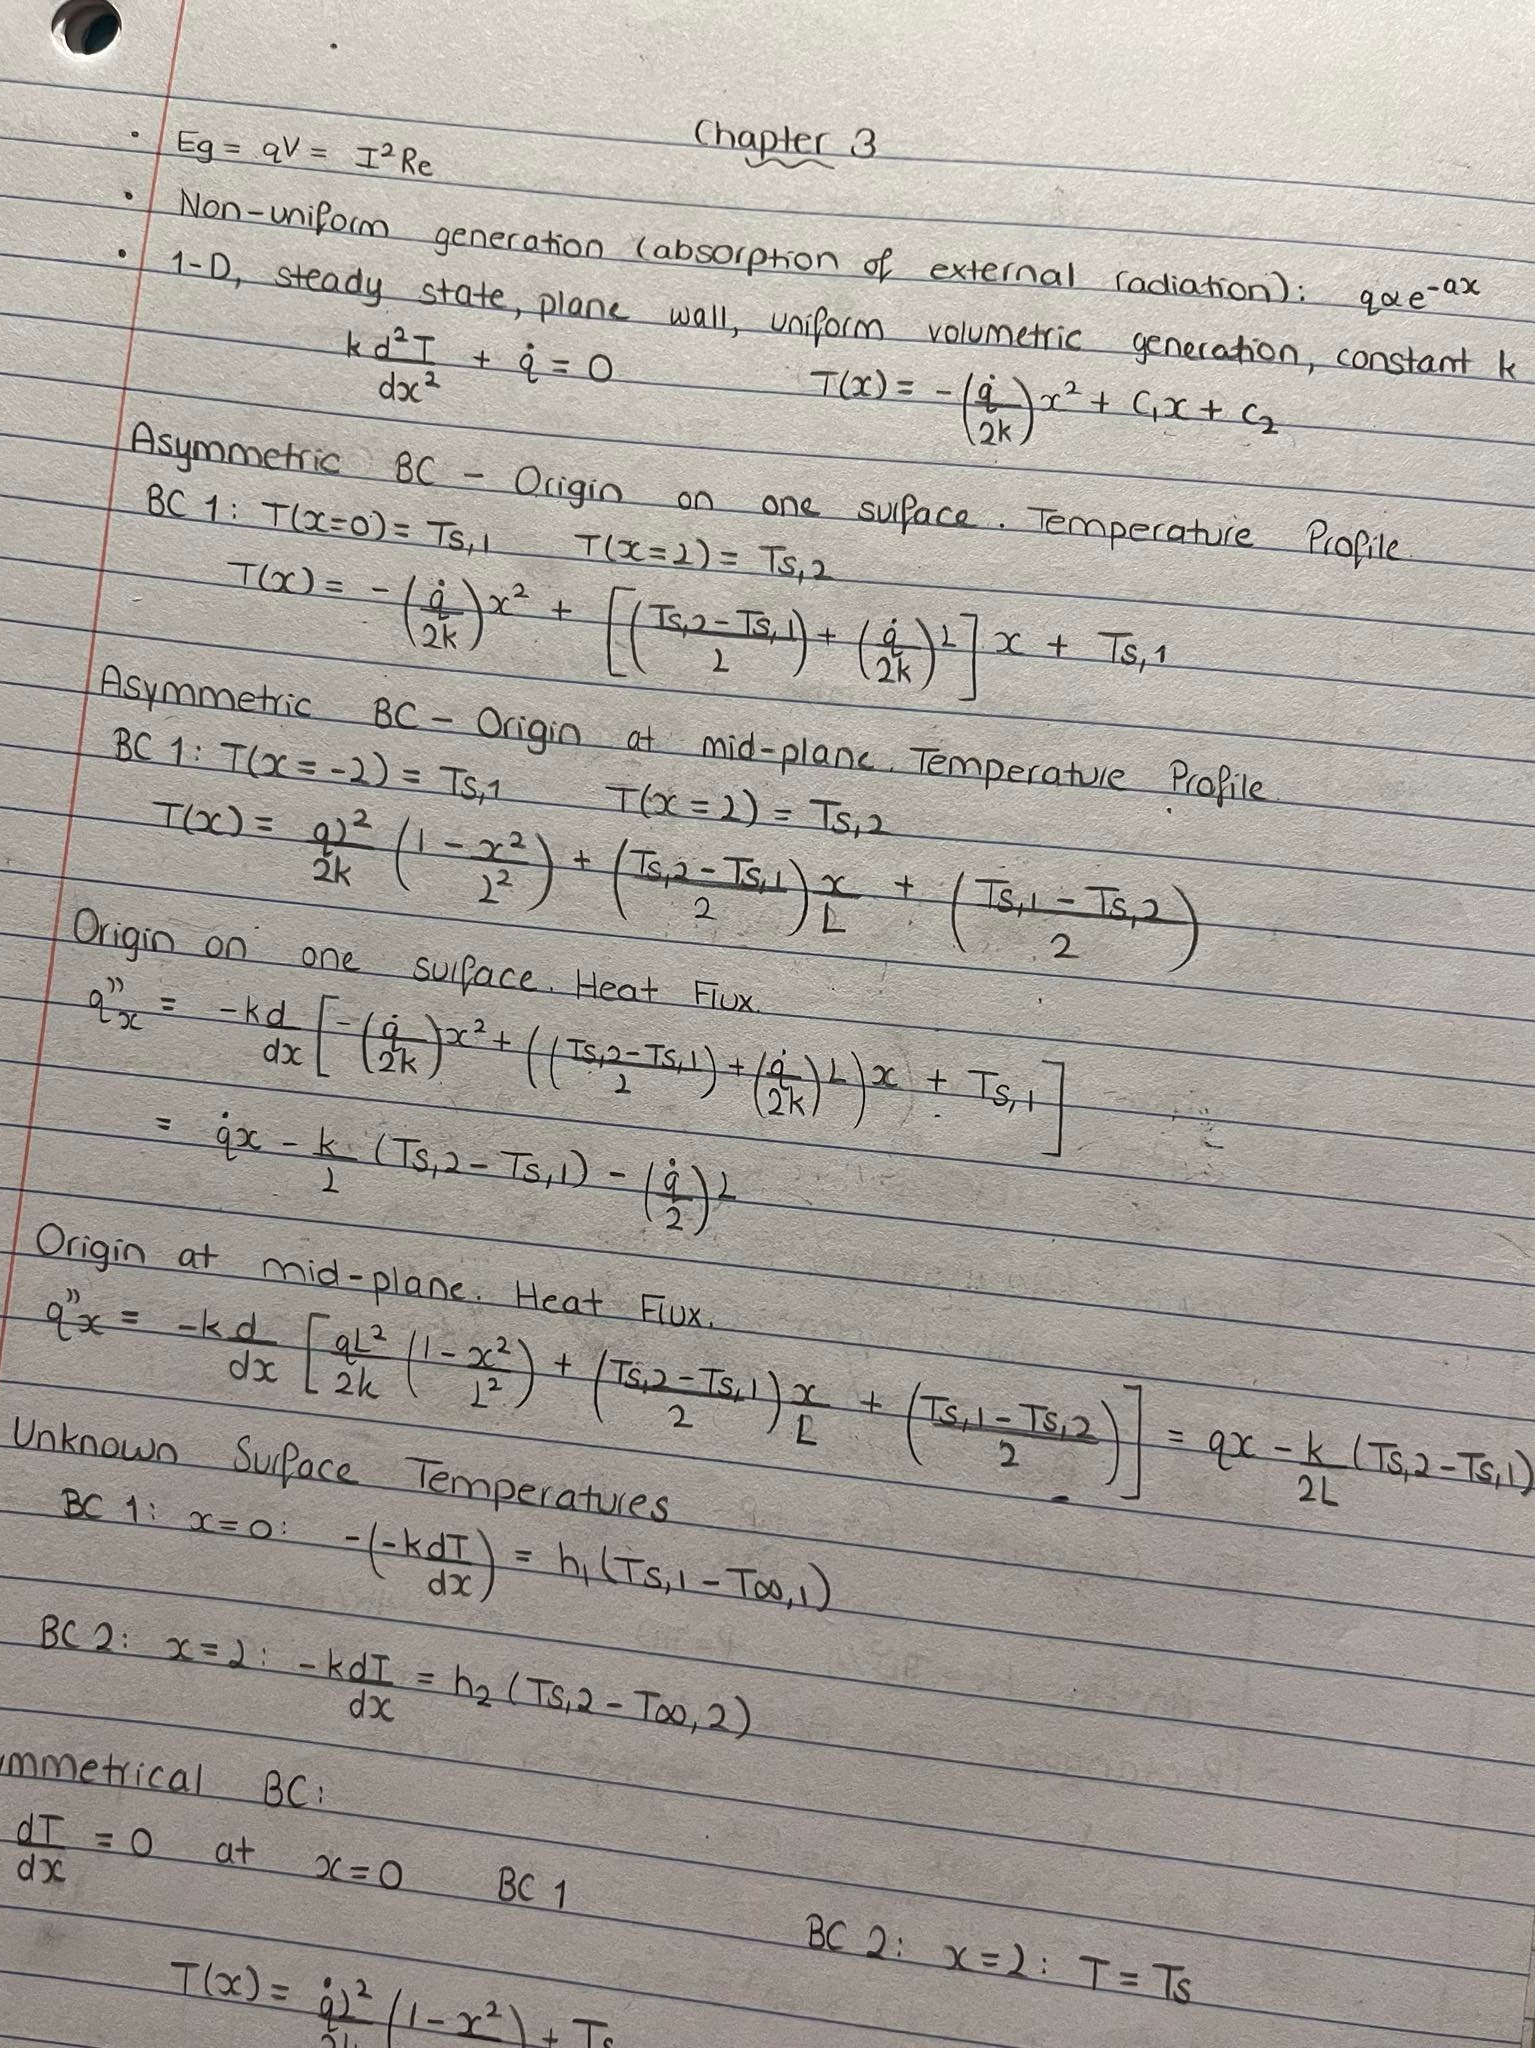 Chapter 3
• Eg = qV = I²Re
• Non-uniform generation (absorption of external radiation): q∝e^-ax
• 1-D, steady state, plane wall, uniform volumetric generation, constant k
k d²T/dx² + q̇ = 0 T(x) = -(q̇/2k)x² + C₁x + C₂
Asymmetric BC - Origin on one surface. Temperature Profile.
BC 1: T(x=0) = Ts,1 T(x=L) = Ts,2
T(x) = -(q̇/2k)x² + [((Ts,2 - Ts,1)/L) + (q̇/2k)L]x + Ts,1
Asymmetric BC - Origin at mid-plane. Temperature Profile.
BC 1: T(x=-L) = Ts,1 T(x=L) = Ts,2
T(x) = q̇L²/2k (1 - x²/L²) + ((Ts,2 - Ts,1)/2) x/L + ((Ts,1 - Ts,2)/2)
Origin on one surface. Heat Flux.
q"x = -k d/dx [-(q̇/2k)x² + (((Ts,2 - Ts,1)/L) + (q̇/2k)L)x + Ts,1]
= q̇x - k/L (Ts,2 - Ts,1) - (q̇/2)L
Origin at mid-plane. Heat Flux.
q"x = -k d/dx [qL²/2k (1 - x²/L²) + ((Ts,2 - Ts,1)/2) x/L + ((Ts,1 - Ts,2)/2)] = qx - k/2L (Ts,2 - Ts,1)
Unknown Surface Temperatures
BC 1: x=0: -(-k dT/dx) = h₁(Ts,1 - T∞,1)
BC 2: x=L: -k dT/dx = h₂(Ts,2 - T∞,2)
mmetrical BC:
dT/dx = 0 at x=0 BC 1 BC 2: x=L: T = Ts
T(x) = q̇L²/2k (1 - x²) + Ts